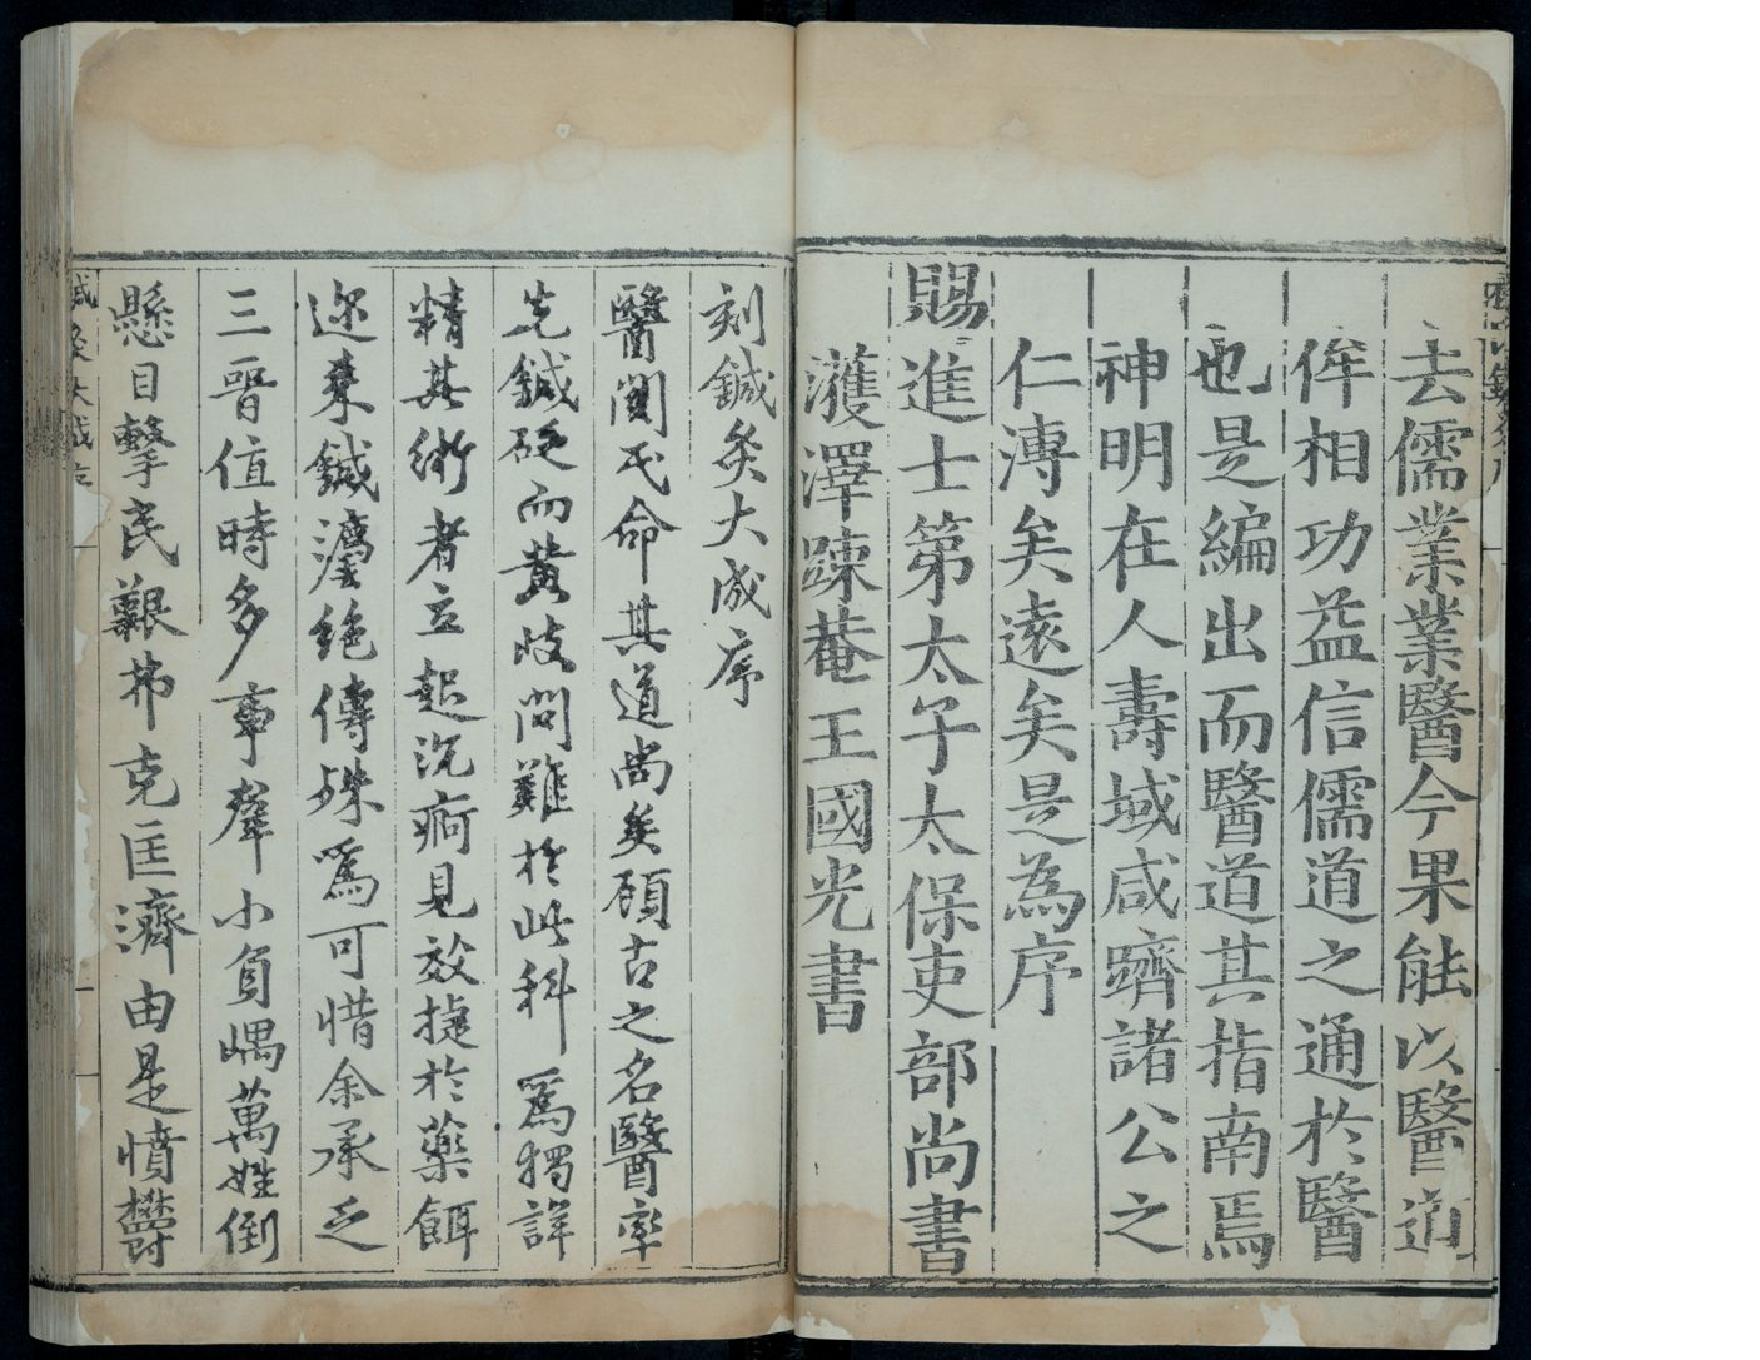 去儒業業醫今果能以醫道
侔相功益信儒道之通於醫
也是編出而醫道其指南焉
神明在人壽域咸躋諸公之
仁溥矣遠矣是為序
賜進士第太子太保吏部尚書
濩澤疎菴王國光書
刻鍼灸大成序
醫関民命其道尚矣顧古之名醫率
先鍼砭而黃岐問難扵此科爲獨詳
精其術者立起沉痾見效捷扵藥餌
迩來鍼灋絶傳殊爲可惜余承乏
三晉值時多事羣小負嵎萬姓倒
懸目擊民艱弗克匡濟由是憤欝